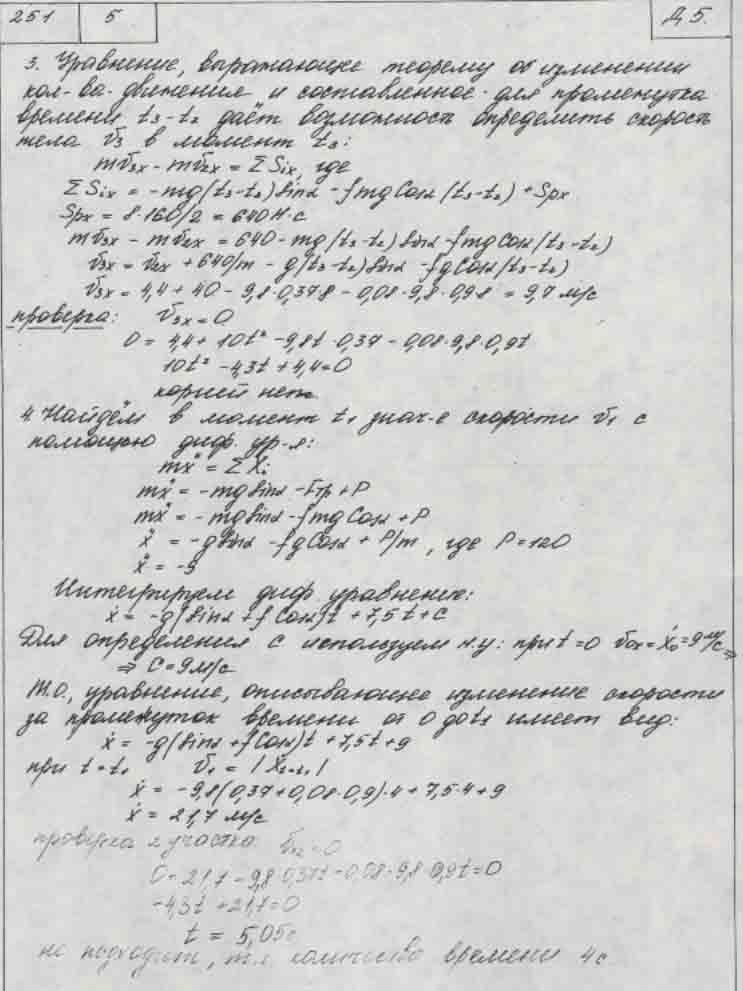 251 5 Д 5.
3. Уравнение, выражающее теорему об изменении
кол-ва движения и составленное для промежутка
времени t₃-t₂ даёт возможность определить скорость
тела v₃ в момент t₃:
mv₃ₓ - mv₂ₓ = ΣSᵢₓ, где
ΣSᵢₓ = -mg(t₃-t₂)sinα - fmgCosα(t₃-t₂) + Spx
Spx = 8·160/2 = 640 Н·с
mv₃ₓ - mv₂ₓ = 640 - mg(t₃-t₂)sinα - fmgCosα(t₃-t₂)
v₃ₓ = v₂ₓ + 640/m - g(t₃-t₂)sinα - fgCosα(t₃-t₂)
v₃ₓ = 4,4 + 40 - 9,8·0,37·8 - 0,08·9,8·0,9·8 = 9,7 м/с
проверка: v₃ₓ = 0
0 = 4,4 + 10t² - 9,8t·0,37 - 0,08·9,8·0,9t
10t² - 4,3t + 4,4 = 0
корней нет
4. Найдём в момент t₁ знач-е скорости v₁ с
помощью диф. ур-я:
mẍ = ΣXᵢ
mẍ = -mgsinα - Fтр + P
mẍ = -mgsinα - fmgCosα + P
ẍ = -gsinα - fgCosα + P/m, где P = 120
ẍ = -g
Интегрируем диф. уравнение:
ẋ = -g(sinα + fCosα)t + 7,5t + C
Для определения С используем н.у: при t=0 v₀ₓ = ẋ₀ = 9 м/с ⇒
⇒ C = 9 м/с
Т.о., уравнение, описывающее изменение скорости
за промежуток времени от 0 до t₁ имеет вид:
ẋ = -g(sinα + fCosα)t + 7,5t + 9
при t = t₁ v₁ = |ẋₜ₌ₜ₁|
ẋ = -9,8(0,37 + 0,08·0,9)·4 + 7,5·4 + 9
ẋ = 21,7 м/с
проверка 2 участка: vₓ₂ = 0
0 = 21,7 - 9,8·0,37t - 0,08·9,8·0,9t = 0
-4,3t + 21,7 = 0
t = 5,05с
не подходит, т.к. количество времени 4с